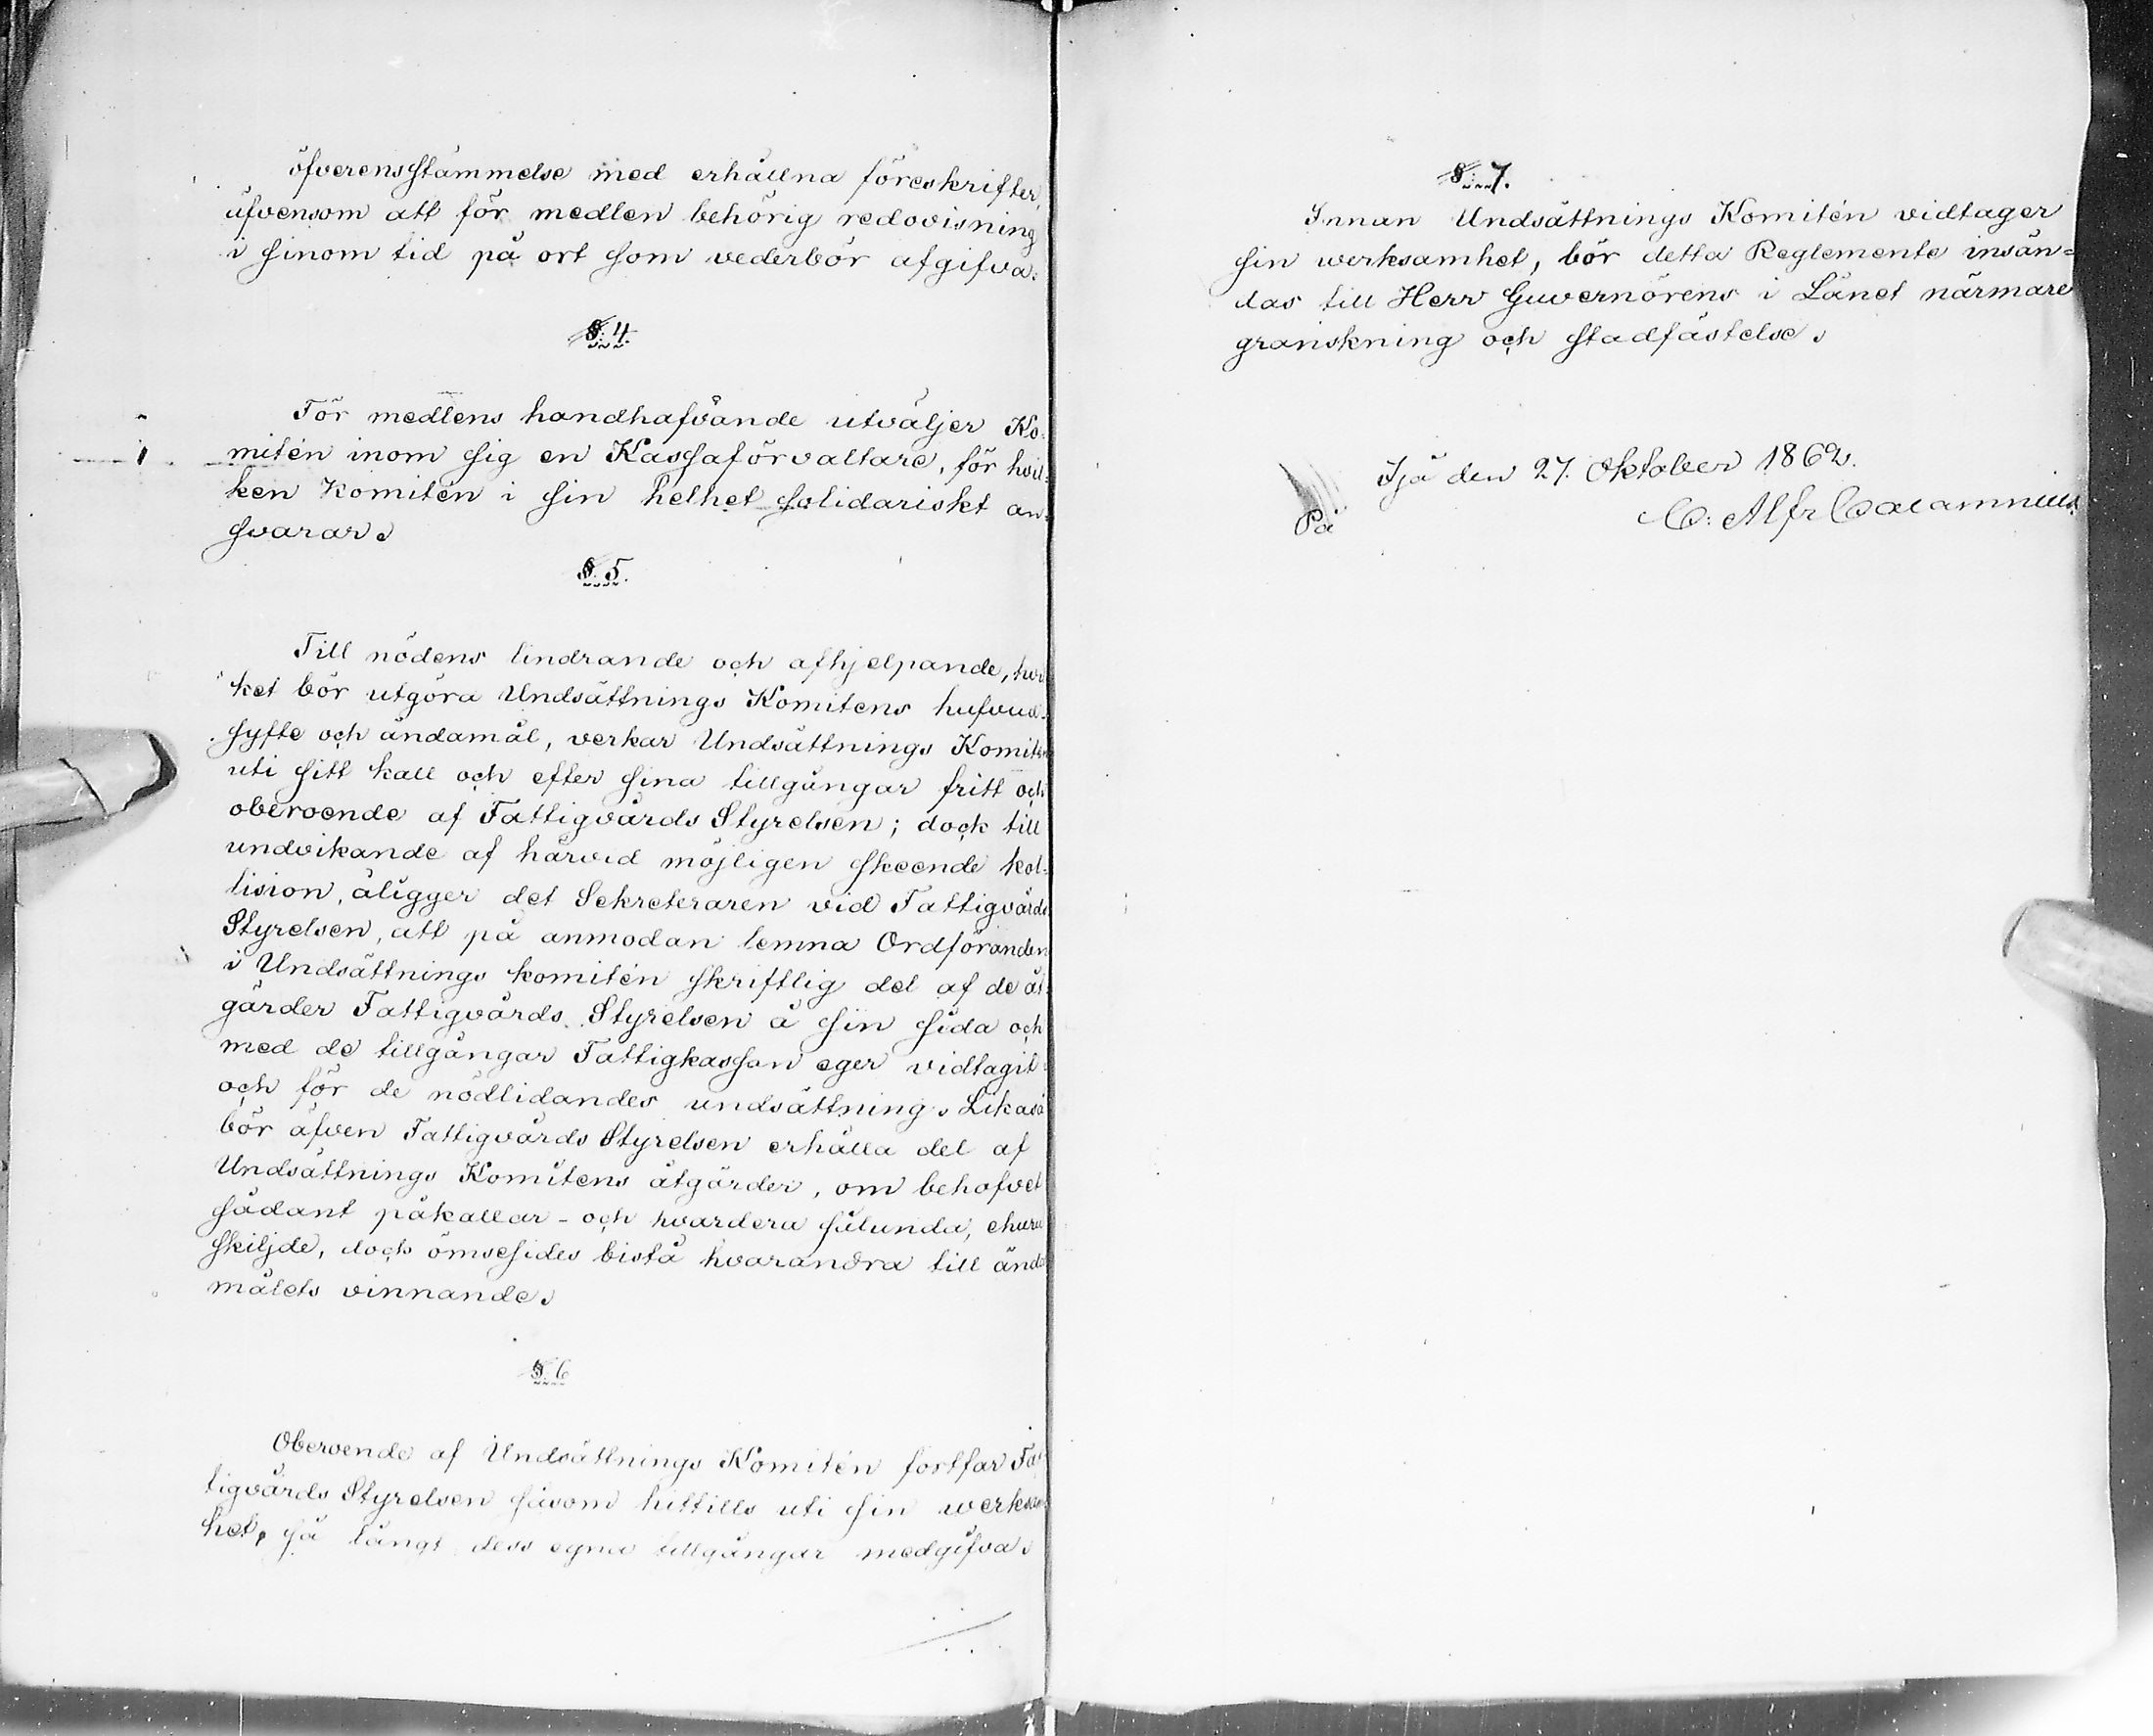 öfverensstämmelse med erhållna föreskrifter,
äfvensom att för medlen behörig redovisning
i sinom tid på ort som vederbör afgifva.
§. 4.
För medlens handhafvande utväljer Ko-
mitén inom sig en Kassaförvaltare, för hvil-
ken Komitén i sin helhet solidariskt an-
svarar.
§. 5.
Till nödens lindrande och afhjelpande, hvil
ket bör utgöra Undsättnings Komitens hufvud-
syfte och ändamål, verkar Undsättnings Komitén
uti sitt kall och efter sina tillgångar fritt och
oberoende af Fattigvårds Styrelsen; dock till
undvikande af härvid möjligen skeende kol-
lision, åligger det Sekreteraren vid Fattigvårds
Styrelsen, att på anmodan lemna Ordföranden
i Undsättnings komitén skriftlig del af de åt-
gärder Fattigvårds Styrelsen å sin sida och
med de tillgångar Fattigkassan eger vidtagit
och för de nödlidandes undsättning. Likaså
bör äfven Fattigvårds Styrelsen erhålla del af
Undsättnings Komitens åtgärder, om behofvet
sådant påkallar - och hvardera sålunda, ehuru
skiljde, dock ömsesides bistå hvarandra till ända
målets vinnande.
§. 6
Oberoende af Undsättnings Komitén fortfar Fat
tigvårds Styrelsen såsom hittills uti sin werksam
het, så långt dess egna tillgångar medgifva.
§. 7.
Innan Undsättnings Komitén vidtager
sin werksamhet, bör detta Reglemente insän=
das till Herr Guvernörens i Länet närmare
granskning och stadfästelse.
Ijå den 27. Oktober 1862.
På
C. Alfr Calamnius